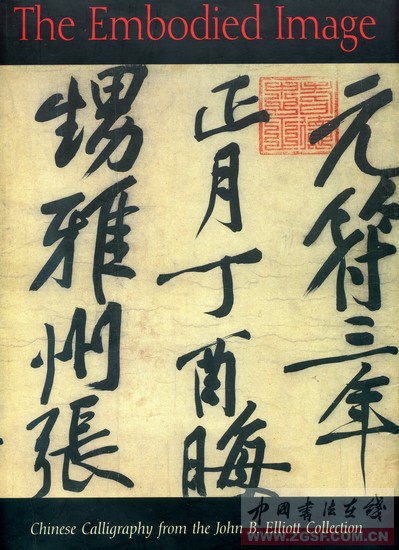 The Embodied Image
元符三年
正月丁酉晦
甥雅州張
中国书法在线
WWW.ZGSF.COM.CN
Chinese Calligraphy from the John B. Elliott Collection